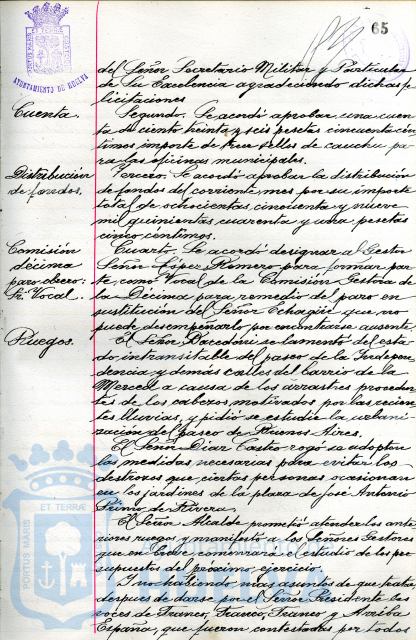 65
PORTUS MARIS ET TERRÆ
AYUNTAMIENTO DE HUELVA
del Señor Secretario Militar y Particular
de Su Excelencia agradeciendo dichas fe
licitaciones
Cuenta.
Segundo. Se acordó aprobar una cuen
ta de ciento treinta y seis pesetas cincuenta cén
timos importe de trece sellos de cauchu pa
ra las oficinas municipales.
Distribución
de fondos.
Tercero. Se acordó aprobar la distribución
de fondos del corriente mes por su importe
total de ochocientas cincuenta y nueve
mil quinientas cuarenta y una pesetas
cinco céntimos.
Comisión
décima
paro obrero.
Sr. Vocal.
Cuarto. Se acordó designar al Gestor
Señor López Romero para formar par
te, como Vocal de la Comisión Gestora de
la Décima para remedio del paro en
sustitución del Señor Echagüe que no
puede desempeñarlo por encontrarse ausente.
Ruegos.
El Señor Bacedóni se lamentó del esta
do intransitable del paseo de la Indepen
dencia y demás calles del barrio de la
Merced a causa de los arrastres proceden
tes de los cabezos motivados por las recien
tes lluvias, y pidió se estudie la urbani
zación del paseo de Buenos Aires.
El Señor Díaz Castro rogó se adopten
las medidas necesarias para evitar los
destrozos que ciertas personas ocasionan
en los jardines de la plaza de José Antonio
Primo de Rivera.
El Señor Alcalde prometió atender los ante
riores ruegos y manifestó a los Señores Gestores
que en breve comenzará el estudio de los pre
supuestos del próximo ejercicio.
Y no habiendo más asuntos de que tratar,
despues de darse por el Señor Presidente las
voces de Franco, Franco, Franco y Arriba
España, que fueron contestadas por todos
PORTUS MARIS ET TERRÆ